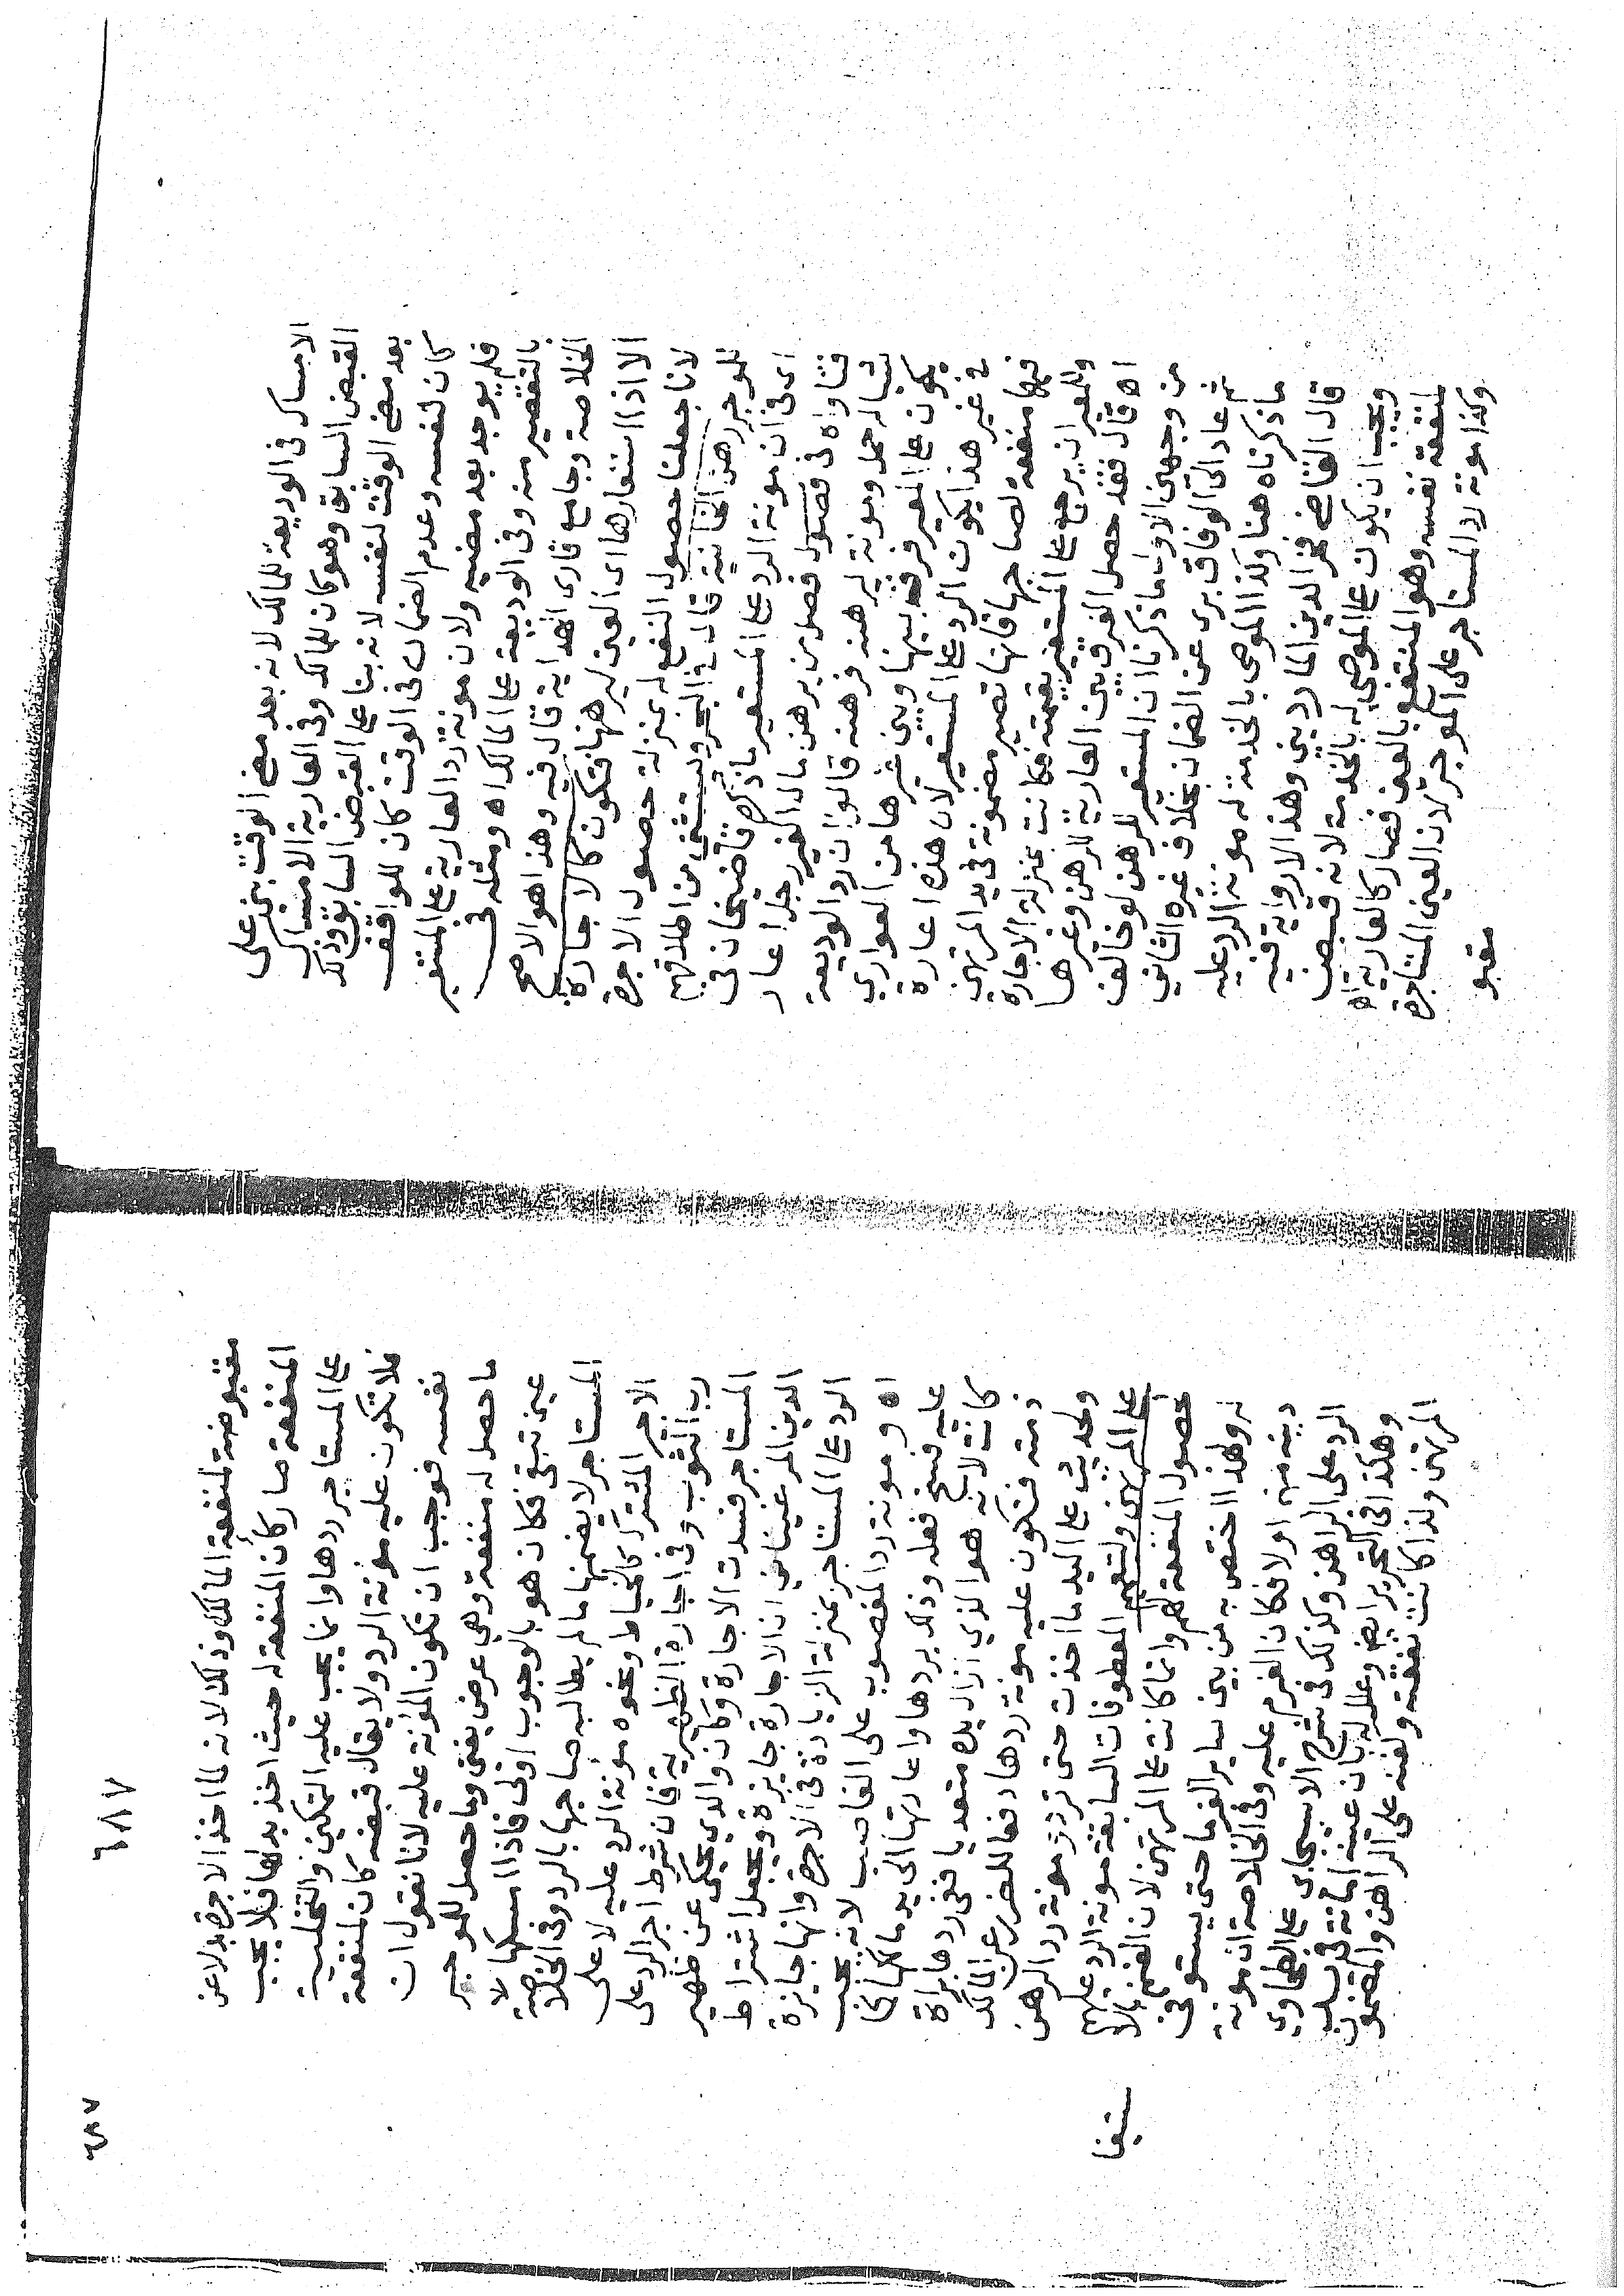 الامساك في الوديعة للمالك لانه بعد مضى الوقت بخدعلى
القبض السابق وهو كان للمالك وفى العارية الامساك
بعد مضى الوقت لنفسه لانه بنا على القبض السابق وذلك
كان لنفسه وعدم الضمان في الوقت كان للموافقه
فلم يوجد بعد مضيه ولان مونة رد العارية على المستعير
بالتقصير منه وفى الوديعة على المالك اه ومثله فى
الخلاصة وجامع قارى الهداية قال فيه وهذا هو الاصح
الا اذا استعارها اى العين ليرهنها فتكون كالاجارة
لانا جعلنا حصول النفع له بمنزلة حصول الاجرة
للموجر رهن الخانية قال في البحر ويستثنى من اطلاقهم
اى فى ان مونة الرد على المستعير ما ذكره قاضيخان فى
فتاواه فى فصول فصل من يرهن مال الغير رجل اعار
شيا له حمل ومونة ليرهنه فرهنه قالوا ان رد الوديعة
يكون على المعير فرق بينها وبين غيرها من العواري
في غير هذا يكون الرد على المستعير لان هذه اعارة
فيها منفعة لصاحبها فانها تصير مضمونة في يد المرتهن
وللمعير ان يرجع على المستعير بقيمته فكانت بمنزلة الاجارة
اه قال فقد حصل الفرق بين العارية للرهن وغيرها
من وجهين الاول ما ذكرنا ان المستعير للرهن لو خالف
ثم عاد الى الوفاق برى عن الضمان بخلاف غيره الثانى
ما ذكرناه هنا وكذا الموصى بالخدمة له مونة الرد عليه
قال القاضى فخر الدين الماردينى وهذا الارواية فيه
ويجب ان يكون على الموصى له بالخدمة لانه قبض
لمنفعة نفسه وهو المنتفع بالعين فصار كالعارية اه
وكذا مونة رد المستاجر على الموجر لان العين المستاجرة
مقبو
٦٨٧
٦٨٧
مقبوضة لمنفعة المالك وذلك لانه لما اخذ الاجرة بدلا عن
المنفعة صار كأن المنفعة له حيث اخذ بدلها فلا يجب
على المستاجر ردها وانما يجب عليه التمكين والتخلية
فلا تكون عليه مؤنة الرد ولا يقال قبضه كان لمنفعة
نفسه فوجب ان تكون المؤنة عليه لانا نقول ان
ما حصل له منفعة وهي عرض يفنى وما حصل للموجر
عين تبقى فكان هو بالوجوب اولى فاذا امسكها لا
المستاجر لا يضمنها ما لم يطالبه صاحبها بالرد وفى الخلاصة
الاجر المشترك كالخياط ونحوه مؤنة الرد عليه لا على
رب الثوب وفى اجارة الظهيرية فان شرط اجر الرد على
المستاجر فسدت الاجارة وكان والدي يحكى عن ظهير
الدين المرغيناني ان الاجارة جايزة ويجعل اشتراط
الرد على المستاجر بمنزلة الزيادة فى الاجرة وانها جايزة
اه و مونة رد المغصوب على الغاصب لانه يجب
عليه فسخ فعله وذلك بردها واعادتها الى يد مالكها كما
كانت لانه هو الذي ازال يده متعديا ففى ردها براة
ذمته فتكون عليه مونة ردها دفعا للضرر عن المالك
ولحديث على اليد ما اخذت حتى ترد ومونة رد الرهن
على المرتهن ولتعم المعطوفات السابقة مونة الرد عليهم
لحصول المنفعة لهم وانما كانت على المرتهن لان الغنم بالا
له ولهذا اختص به من بين ساير الغرما حتى يستوفى
دينه منه اولا فكان الغرم عليه وفى الخلاصة ان مونة
الرد على الراهن وكذلك فى شرح الاسبيجابى على الطحاوي
وهكذا فى التحرير ايضا وعلله بان عينه امانة فى يد
المرتهن ولذا كانت نفقته وكفنه على الراهن والمضمون
ستيفا